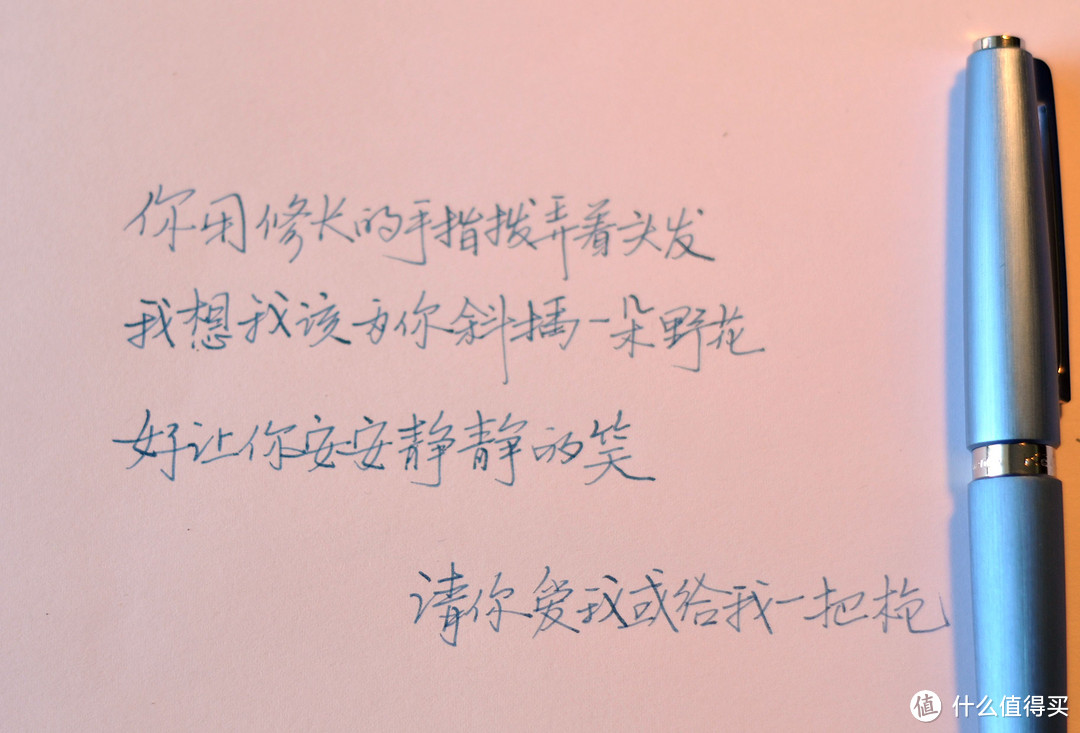 你用修长的手指拨弄着头发
我想我该为你斜插一朵野花
好让你安安静静的笑
请你爱我或给我一把枪
值 什么值得买